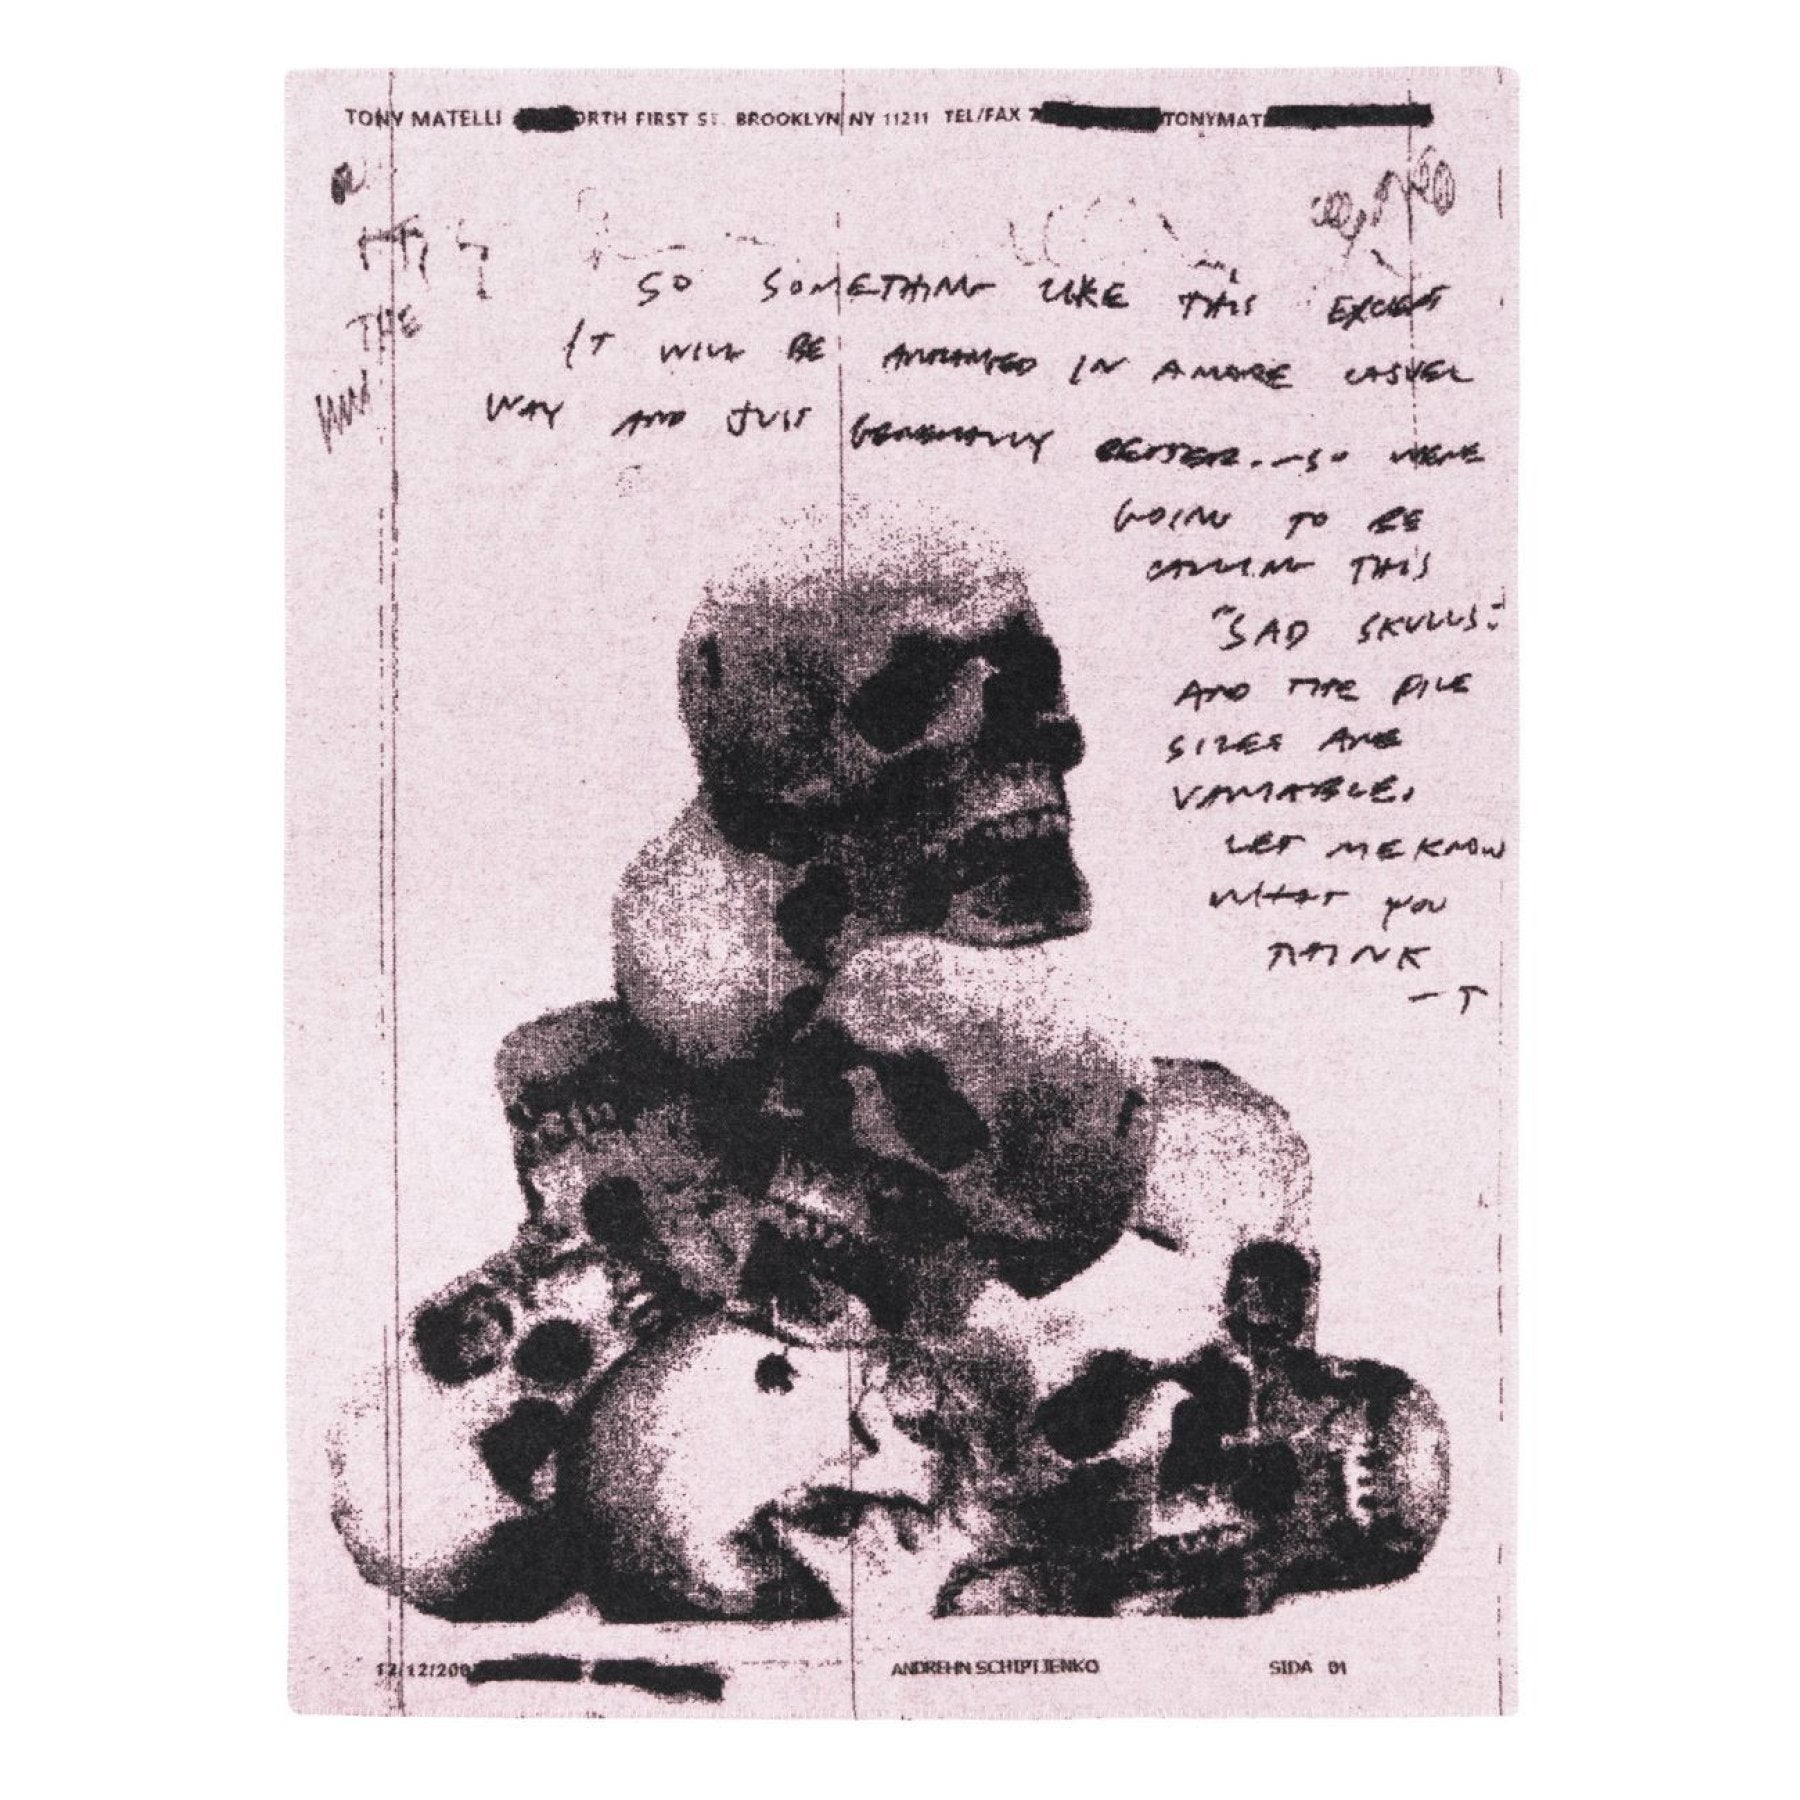 TONY MATELLI ORTH FIRST ST. BROOKLYN NY 11211 TEL/FAX 7 TONYMAT
THE
SO SOMETHING LIKE THIS EXCEPT
IT WILL BE ARRANGED IN A MORE CASUEL
WAY AND JUST GENERALLY BETTER. - SO WERE
GOING TO BE
CALLING THIS
"SAD SKULLS".
AND THE PILE
SIZES ARE
VARIABLE.
LET ME KNOW
WHAT YOU
THINK
- T
12/12/200 ANDREHN SCHIPTJENKO SIDA 01